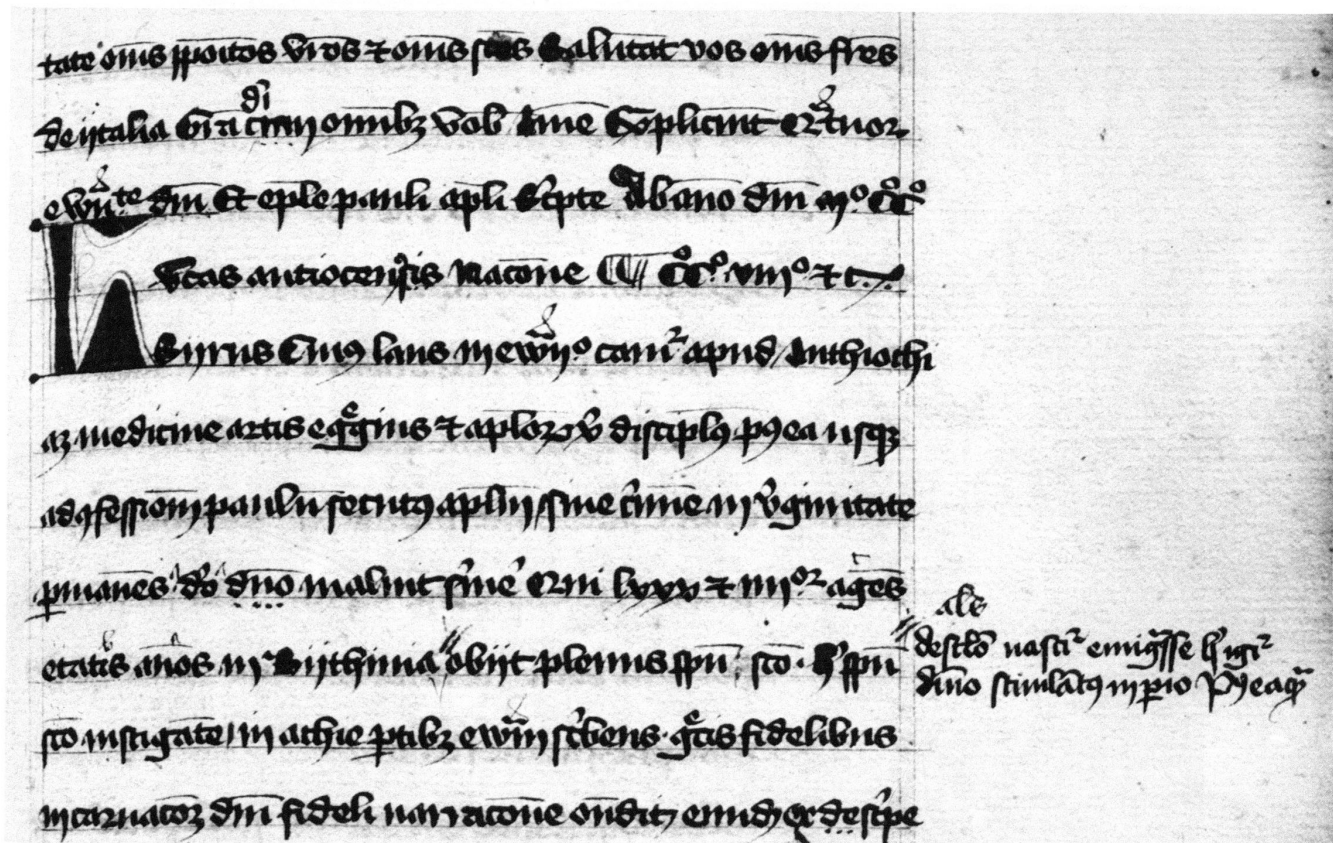 tate om̄s p̄poītos vr̄os ⁊ om̄s sc̄os Salutat vos om̄s fr̄es
de ytalia Gr̄a dī cum omnibꝫ vob̄ Ame Explic̄iūt
dn̄i Et ep̄le pauli apl̄i Sc̄pte Ab anno dn̄i mº ccº
lucas antiocenſis nac̄one ccº viijº ⁊ c.
Sirus Cuiꝰ laus in ewāꝰ canit͛ apud Anthiochi
aꝫ medicine artis egͤgius ⁊ apl̄oꝝ x̄ discipl̄ꝰ pꝰea usqꝫ
ad ꝯfessionꝫ paulū secutꝰ apl̄m sine c̄mīe in v̄ginitate
ꝑmanēs d̄o dn̄o maluit s̄uiē Qui lxxx ⁊ iiijoꝛ agēs
etatis an̄os in Bythinia obijt plenus sp̄u sc̄o. Hͥ sp̄u
sc̄o instigāte in athie ꝑtibꝫ ewāꝫ sc̄bens gͤcis fidelibus
incarnac̄oꝫ dn̄i fideli narrac̄one on̄dit eundꝫ ex de st̄pe
als
de sc̄lo nascit͛ emigͣsse igit͛
diuīo stimulātꝰ in p̄io Pꝰeaqͣꝫ